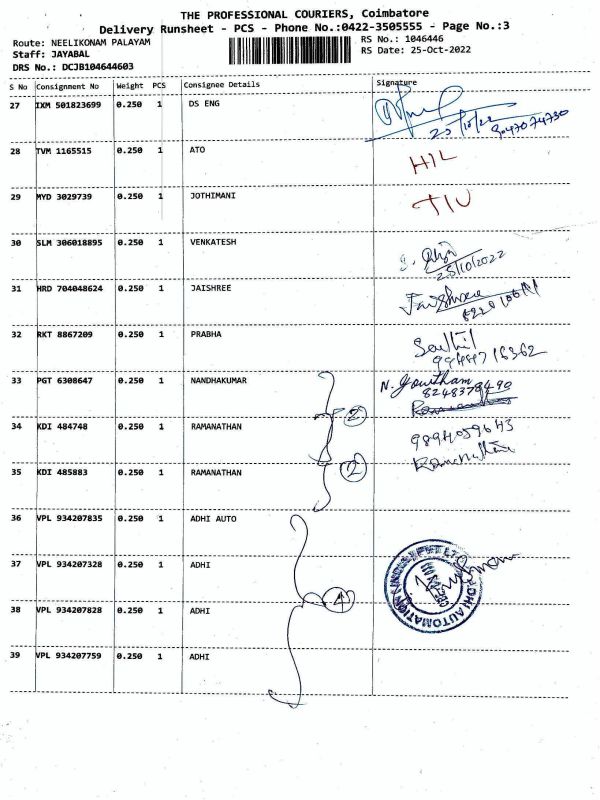 THE PROFESSIONAL COURIERS, Coimbatore
Delivery Runsheet - PCS - Phone No.:0422-3505555 - Page No.:3
Route: NEELIKONAM PALAYAM
RS No.: 1046446
Staff: JAYABAL
RS Date: 25-Oct-2022
DRS No.: DCJB104644603
S No Consignment No Weight PCS Consignee Details Signature
27 IXM 501823699 0.250 1 DS ENG
25/10/22 9047074730
28 TVM 1165515 0.250 1 ATO HIL
29 MYD 3029739 0.250 1 JOTHIMANI TIU
30 SLM 306018895 0.250 1 VENKATESH
25/10/2022
31 HRD 704048624 0.250 1 JAISHREE Jaishree
32 RKT 8867209 0.250 1 PRABHA Senthil
33 PGT 6308647 0.250 1 NANDHAKUMAR N. Gowtham
8248378490
2
34 KDI 484748 0.250 1 RAMANATHAN 9894059643
Ramanathan
35 KDI 485883 0.250 1 RAMANATHAN 2
36 VPL 934207835 0.250 1 ADHI AUTO
37 VPL 934207328 0.250 1 ADHI
4
38 VPL 934207828 0.250 1 ADHI
ADHI AUTOMATION (INDIA) PVT LTD
39 VPL 934207759 0.250 1 ADHI